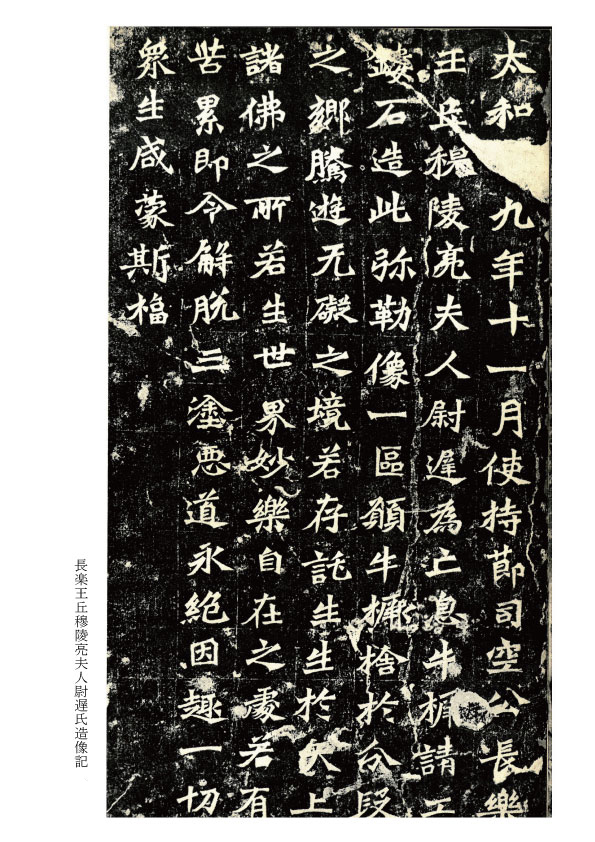 太和 九年十一月使持節司空公長樂
王丘穆陵亮夫人尉遲為亡息牛橛請工
鏤石造此弥勒像一區願牛橛捨於分段
之鄉騰遊无礙之境若存託生生於天上
諸佛之所若生世界妙樂自在之處若有
苦累即令解脱三塗惡道永絶因趣一切
衆生咸蒙斯福
長楽王丘穆陵亮夫人尉遅氏造像記